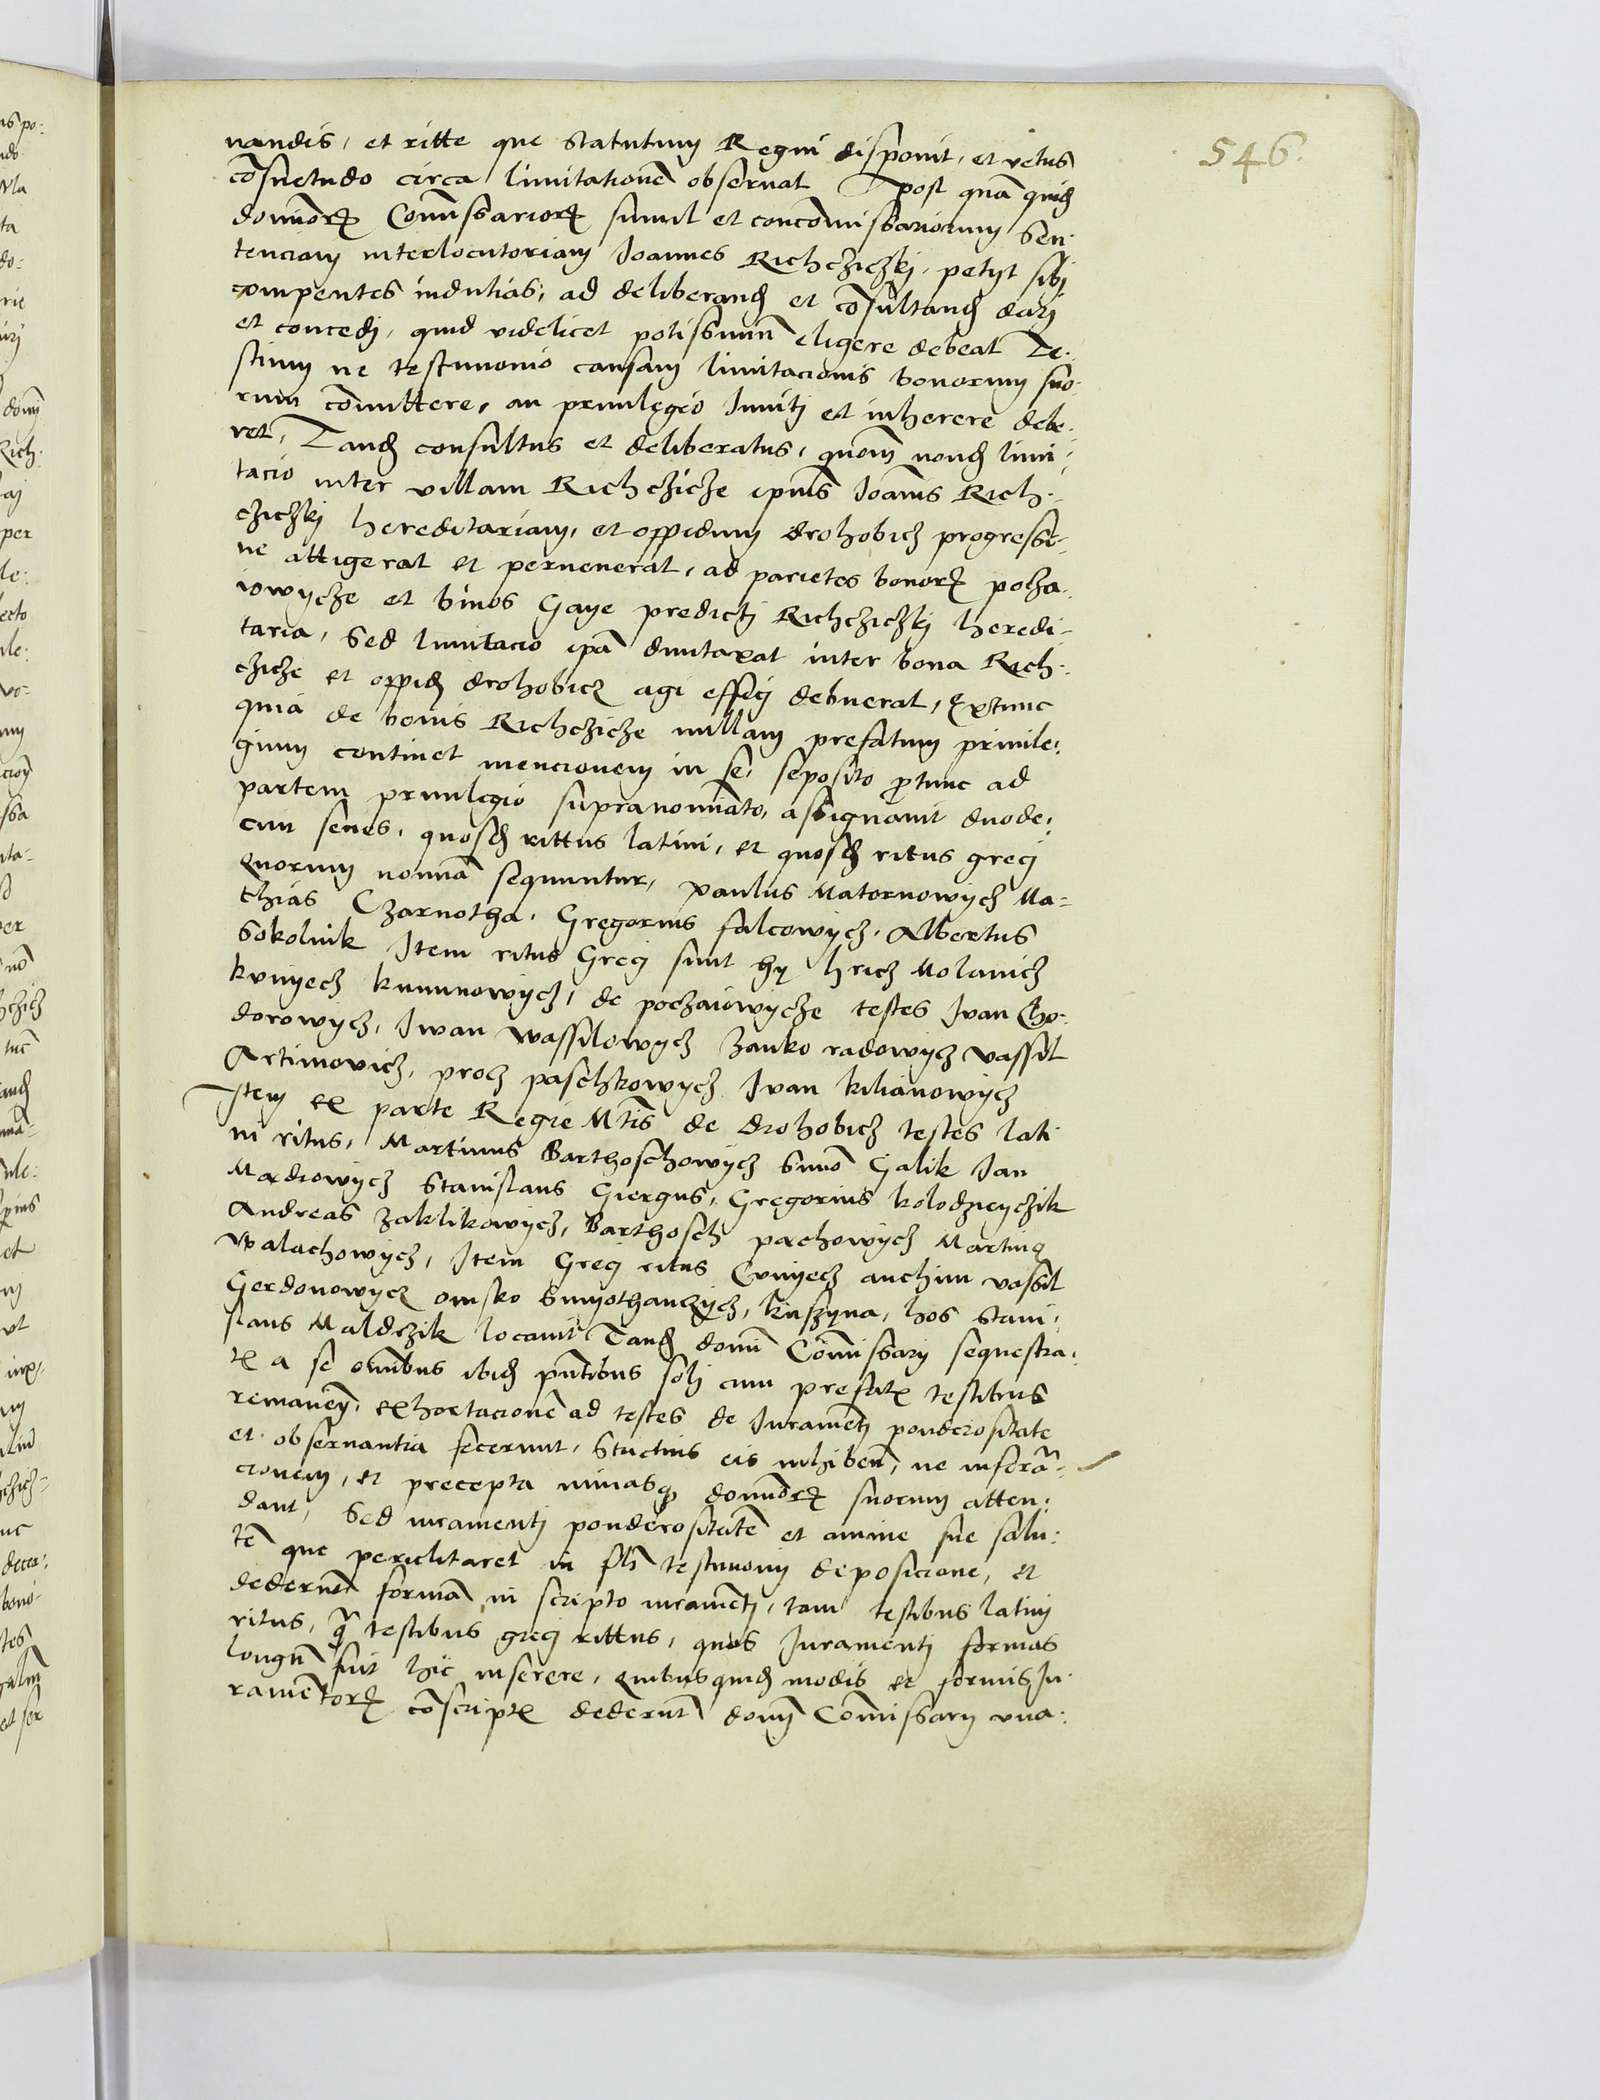 546.
nandis, et ritte que statutum Regni disponit, et vetus
cõsuetudo circa limitationẽ obseruat Post quã quidẽ
dominorũ Comissariorũ simul et concomissariorum sen:
tenciam interlocutoriam Joannes Richcziczkj, petyt sibj
competentes indutias, ad deliberandũ et cõsultandũ darj
et concedj, quid videlicet potissimũ eligere debeat Te:
stium ne testimonio causam limitacionis bonorum suo:
rum cõmittere, an priuilegio Initj et inherere debe:
ret, Tandẽ consultus et deliberatus, quoniã nondũ limi:
tacio inter villam Richczicze ipius Joañis Rich:
cziczkj hereditariam, et oppidum drohobicz progressi:
ne attigerat et peruenerat, ad parietes bonorũ pocza:
iowycze et binos Gaye predictj Richcziczkj heredi:
taria, Sed limitacio ipã duntaxat inter bona Rich:
czicze et oppidũ drohobicz agi effici debuerat, Extunc
quia de bonis Richczicze nullam prefatum priuile:
gium continet mencionem in se, seposito ptunc ad
partem priuilegio supranominato, assignauit duode:
cim senes, quosdã rittus latini, et quosdã ritus grecj
quorum nomiã sequuntur, Paulus Matornowycz Ma=
thias Czarnotha, Gregorius falcowycz, Albertus
Sokolnik Item ritus Grecj sunt hij hricz Molanicz
kunyecz kununowycz, de poczaiowycze testes Iuan Cho:
dorowycz, Iwan wassilowycz Zanko radowycz vassil
Artimovicz, procz paschkowycz Iuan kilianowycz
Item ex parte Regie Mtis de drohobicz testes lati
ni ritus, Martinus Barthoschowycz Simõ Galik Jan
Madrowycz Stanislaus Giergus, Gregorius kolodzieyczik
Andreas Zaklikowycz, Barthosch pachowycz Martinus
Walachowycz, Item Grecj ritus Cunyecz anchim vassil
Gerdonowycz omsko Smyothanczycz, kuszyna, hos Stani:
slaus Maldrzik locauit Tandẽ domĩ Cõmissarij sequestra:
tis a se omĩbus ibidẽ pñtibus solj cum prefatis testibus
remaneñ, exhortacionẽ ad testes de Iuramẽtj ponderositate
et obseruantia fecerunt, Strictius eis inhibeñ, ne inforã:
cionem, et precepta minasq dominorũ suorum atten:
dant, Sed iuramentj ponderositatẽ et anime sue salu:
tẽ que periclitaret in flã testimonij deposicione, et
dederunt formã in scripto iuramẽtj, tam testibus latinj
ritus, q̃ testibus grecj rittus, quas Iuramentj formas
longũ fuit hic inserere, quibus quidẽ modis et formis Iu:
ramẽtorũ cõscriptis dederũt domĩ Cõmissarij vna: